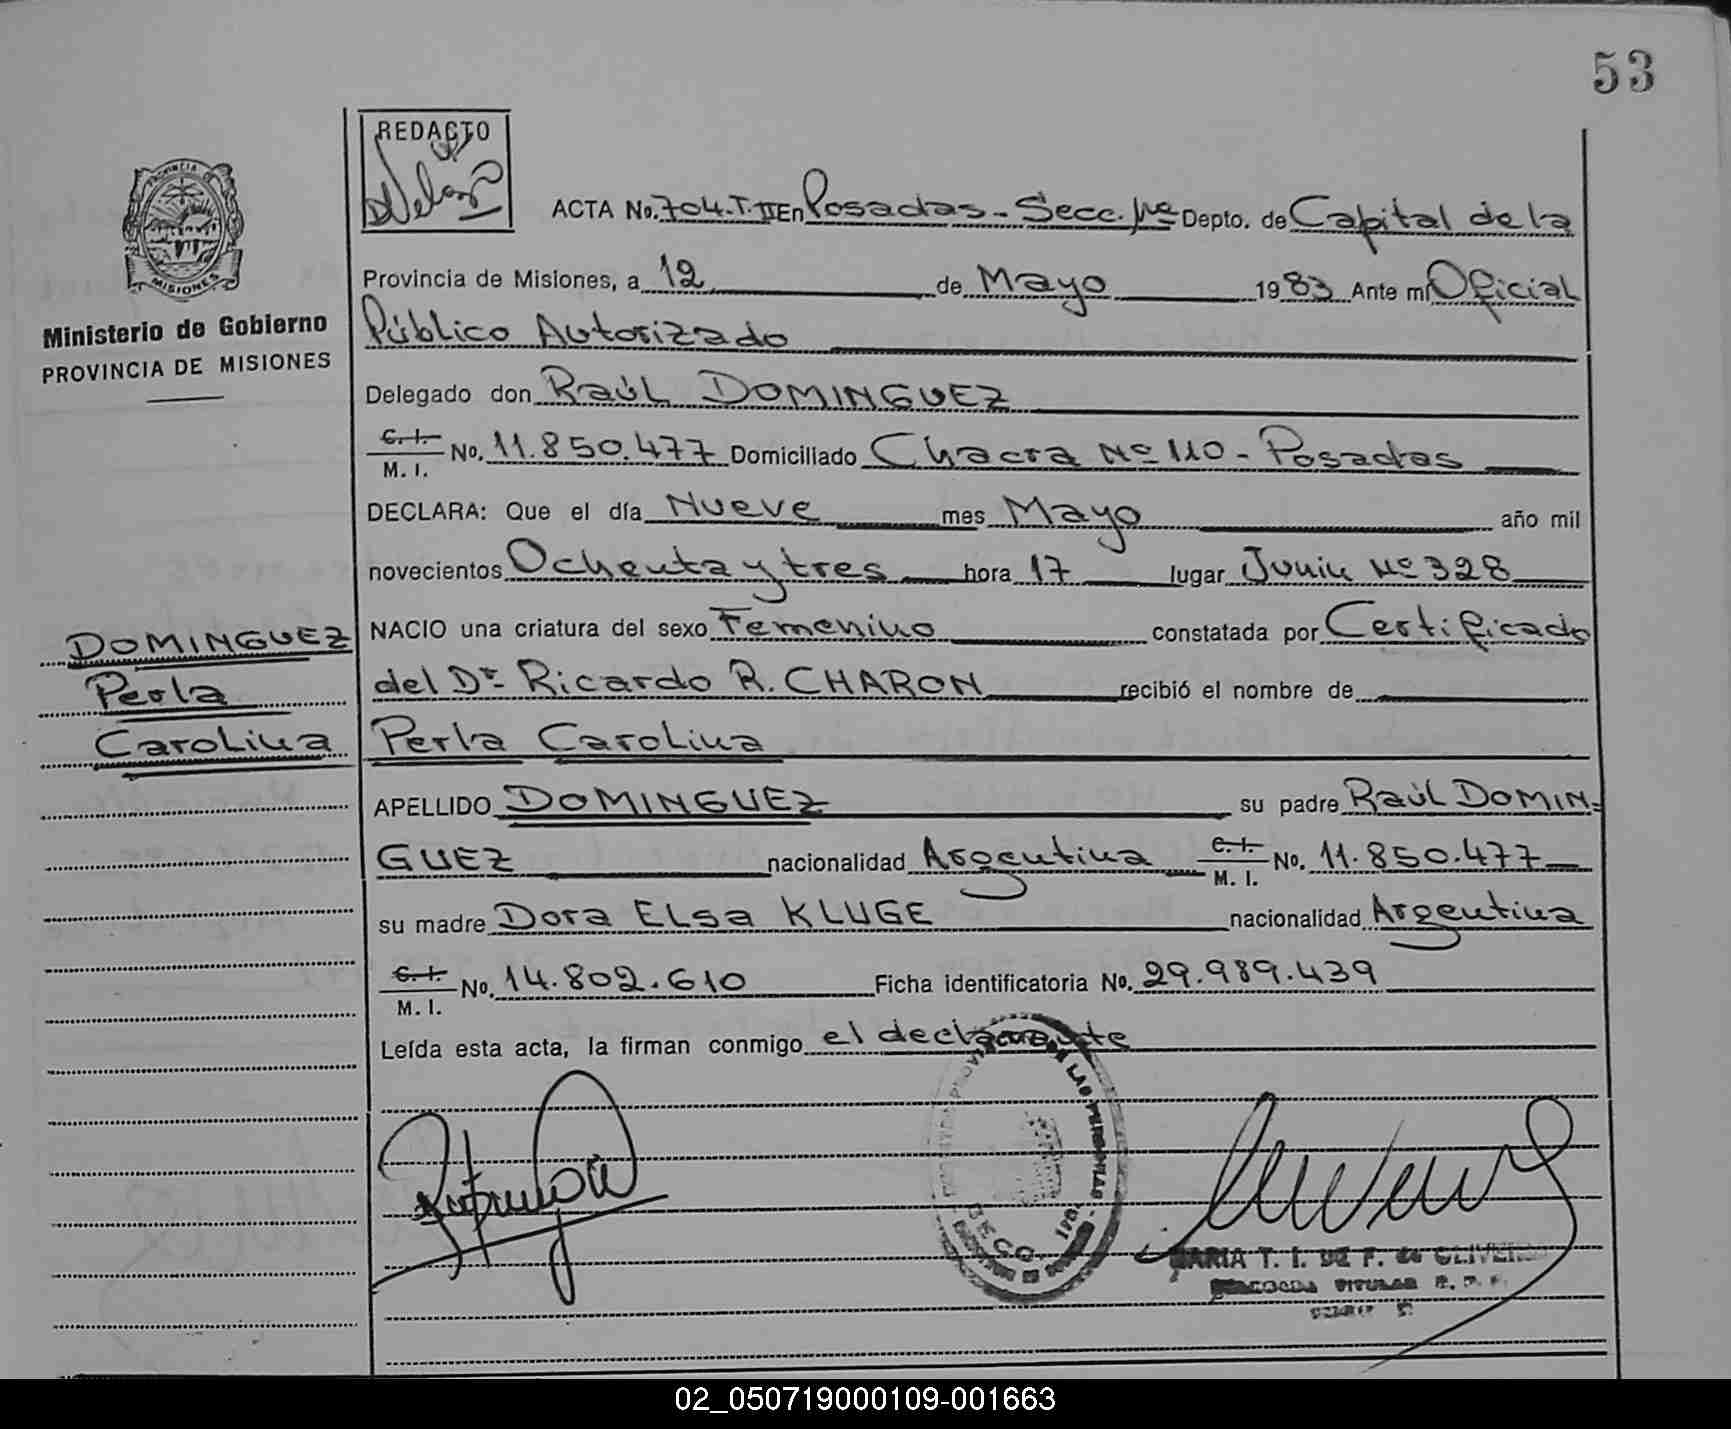 53
REDACTO
PROVINCIA DE
MISIONES
Ministerio de Gobierno
PROVINCIA DE MISIONES
ACTA No. 704-T.II En Posadas-Secc. 1ra Depto. de Capital de la
Provincia de Misiones, a 12 de Mayo 1983 Ante mí Oficial
Público Autorizado
Delegado don Raúl DOMINGUEZ
C. I. M. I. No. 11.850.477 Domiciliado Chacra Nº 110 - Posadas
DECLARA: Que el día Nueve mes Mayo año mil
novecientos Ochenta y tres hora 17 lugar Junin Nº 328
NACIO una criatura del sexo Femenino constatada por Certificado
del Dr. Ricardo R. CHARON recibió el nombre de
Perla Carolina
APELLIDO DOMINGUEZ su padre Raúl DOMIN=
GUEZ nacionalidad Argentina C. I. M. I. No. 11.850.477
su madre Dora Elsa KLUGE nacionalidad Argentina
C. I. M. I. No. 14.802.610 Ficha identificatoria No. 29.989.439
Leída esta acta, la firman conmigo el declarante
DOMINGUEZ
Perla
Carolina
DE LAS PERSONAS
MARIA T. I. DE F. de OLIVEIRA
TITULAR R. P.
02_050719000109-001663